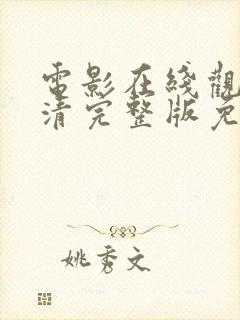 電影在綫觀
清完整版免
姚秀文